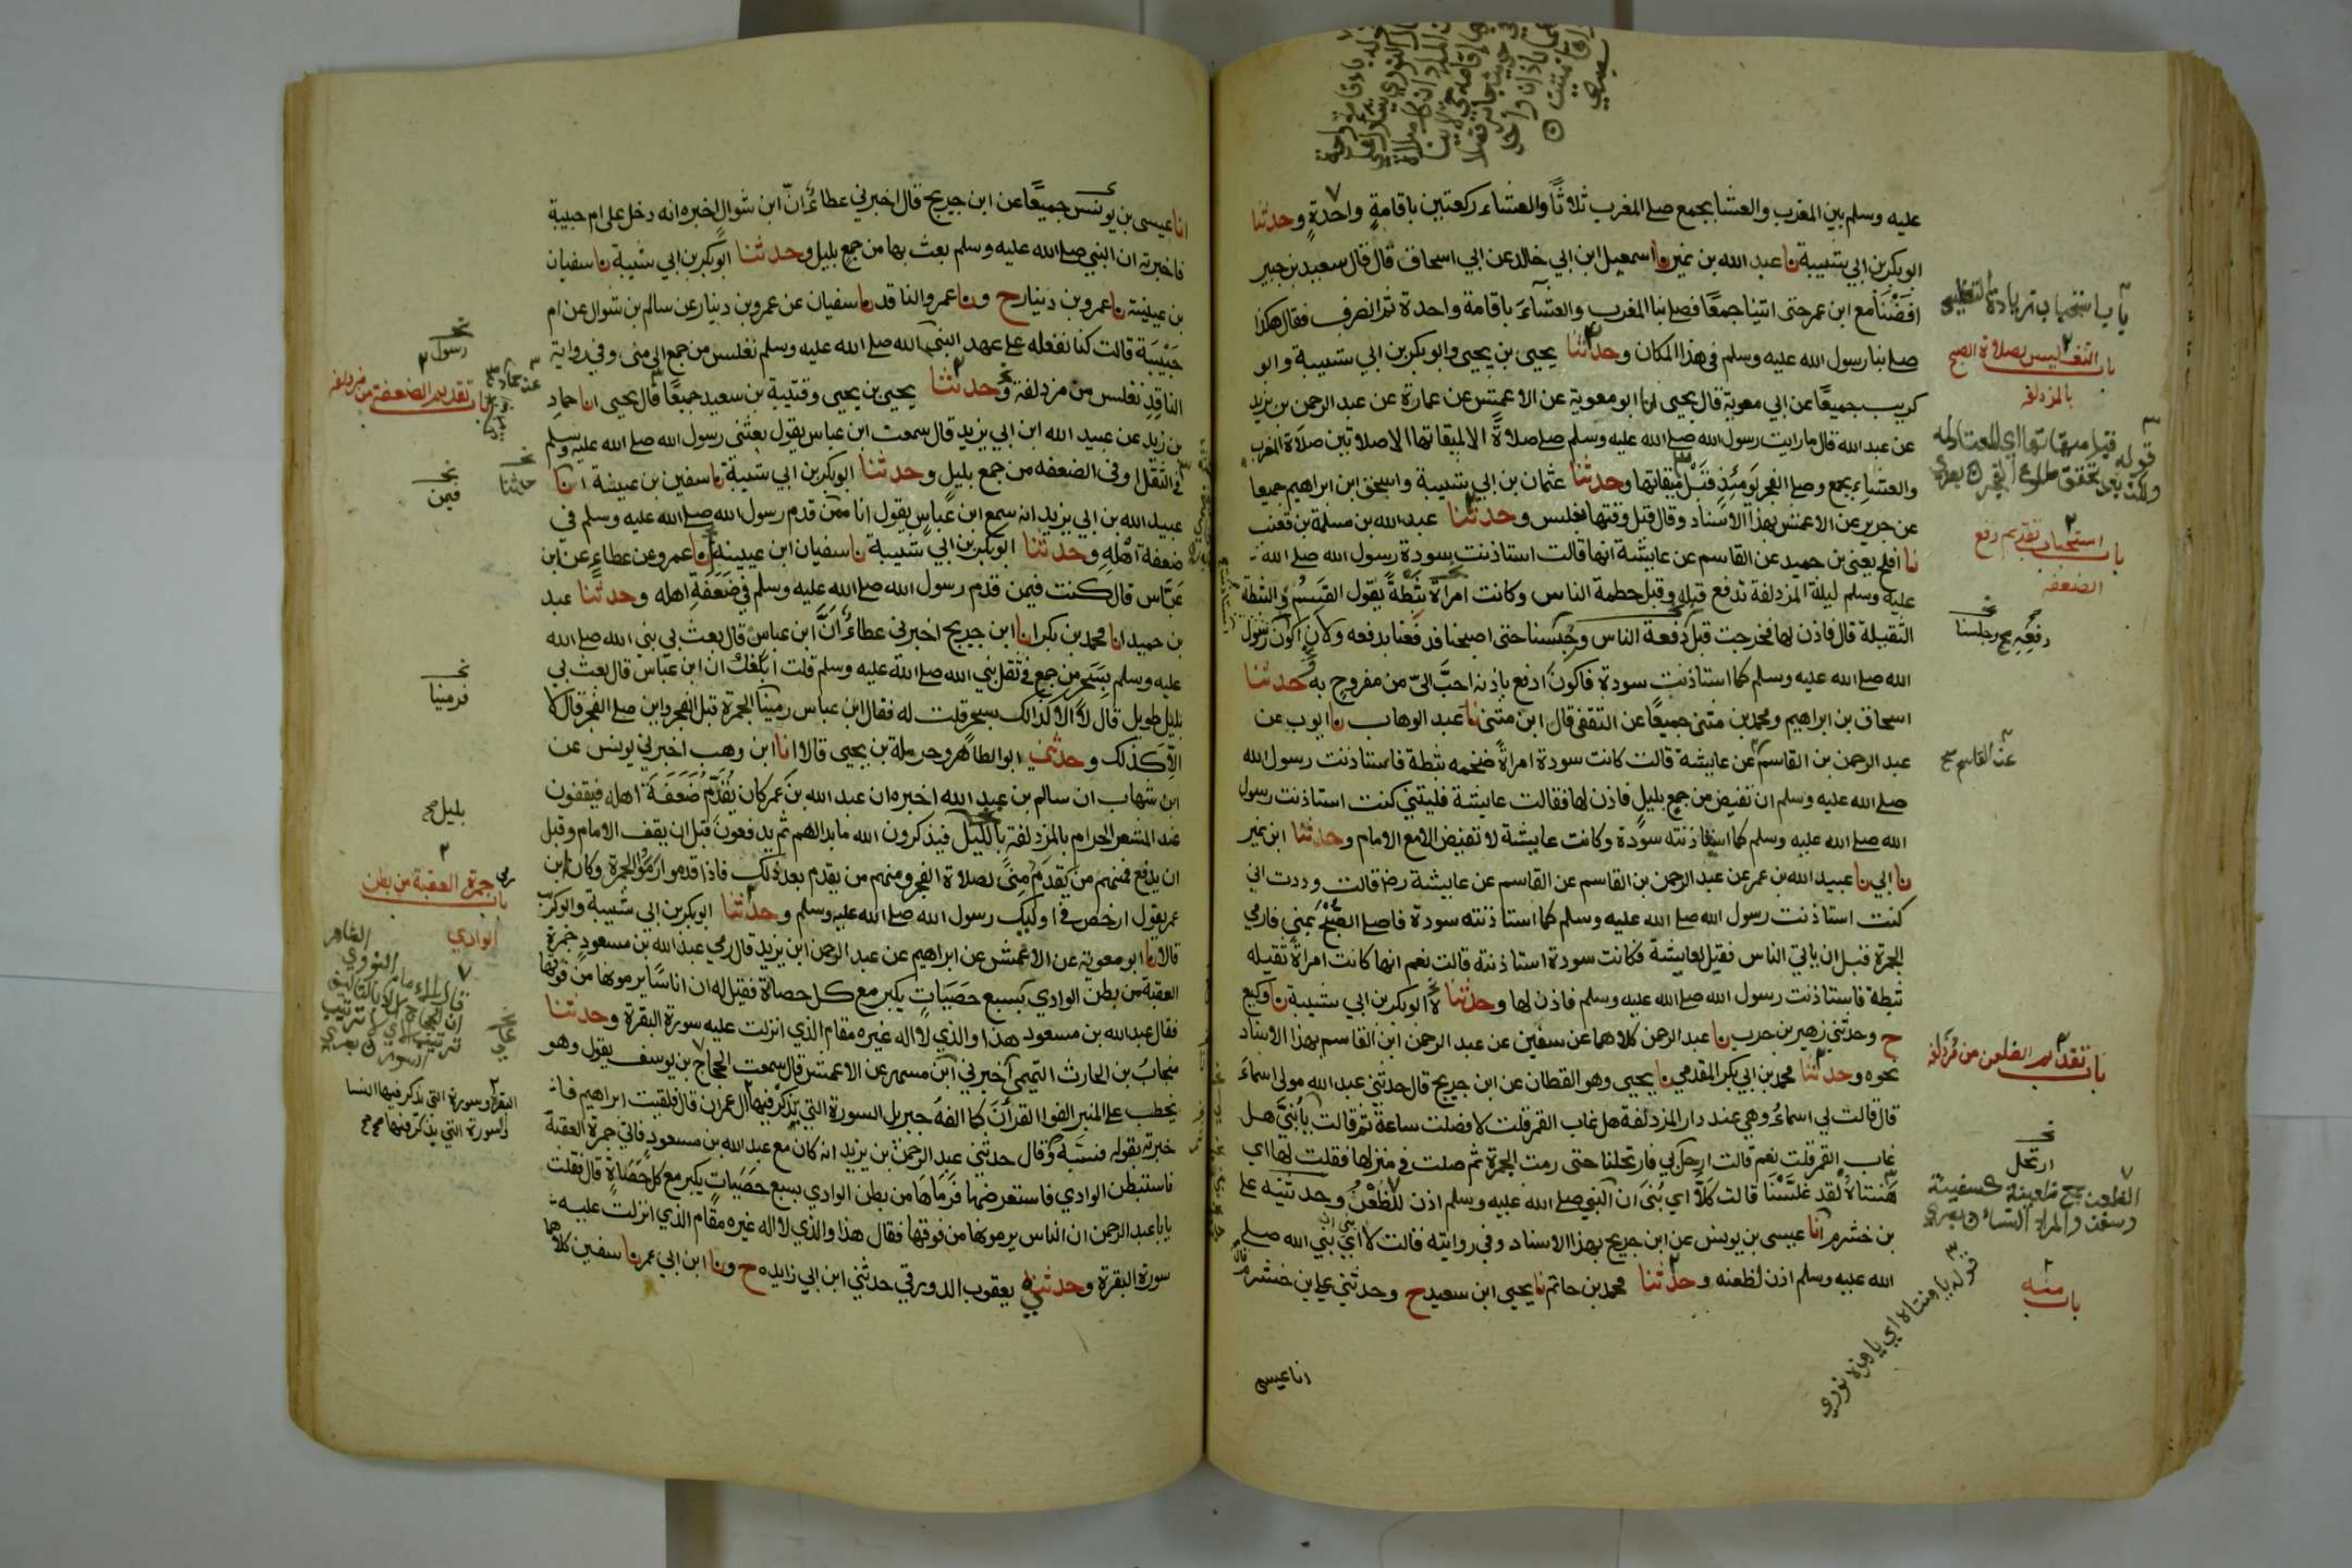 عليه وسلم بين المغرب والعشا بجمع صلى المغرب ثلاثًا والعشاء ركعتين باقامةٍ واحدةٍ وحدثنا
ابوبكر بن ابي شيبة نا عبد الله بن نمير نا اسمعيل ابن ابي خالد عن ابي اسحاق قال قال سعيد بن جبير
افضنا مع ابن عمر حتى اتينا جمعًا فصلى بنا المغرب والعشاء باقامة واحدة ثم انصرف فقال هكذا
صلى بنا رسول الله صلى الله عليه وسلم في هذا المكان وحدثنا يحيى بن يحيى وابوبكر بن ابي شيبة وابو
كريب جميعًا عن ابي معوية قال يحيى انا ابو معوية عن الاعمش عن عمارة عن عبد الرحمن بن يزيد
عن عبد الله قال ما رايت رسول الله صلى الله عليه وسلم صلى صلاةً الا لميقاتها الا صلاتين صلاة المغرب
والعشاء بجمع وصلى الفجر يومئذٍ قبل ميقاتها وحدثنا عثمان بن ابي شيبة واسحق ابن ابراهيم جميعا
عن جرير عن الاعمش بهذا الاسناد وقال قبل وقتها بغلس وحدثنا عبد الله بن مسلمة بن قعنب
نا افلح يعني بن حميد عن القاسم عن عايشة انها قالت استاذنت سودة رسول الله صلى الله
عليه وسلم ليلة المزدلفة تدفع قبله وقبل حطمة الناس وكانت امراة ثبطة يقول القسم والثبطة
الثقيلة قال فاذن لها فخرجت قبل دفعة الناس وحبسنا حتى اصبحنا فدفعنا بدفعه ولان اكون رسول
الله صلى الله عليه وسلم كما استاذنت سودة فاكون ادفع باذنه احبّ اليّ من مفروح به وحدثنا
اسحاق بن ابراهيم ومحمد بن مثنى جميعًا عن الثقفي قال ابن مثنى نا عبد الوهاب نا ايوب عن
عبد الرحمن بن القاسم عن عايشة قالت كانت سودة امراةً ضخمه ثبطة فاستاذنت رسول الله
صلى الله عليه وسلم ان تفيض من جمع بليل فاذن لها فقالت عايشة فليتني كنت استاذنت رسول
الله صلى الله عليه وسلم كما استاذنته سودة وكانت عايشة لا تفيض الا مع الامام وحدثنا ابن نمير
نا ابي نا عبيد الله بن عمر عن عبد الرحمن بن القاسم عن القاسم عن عايشة رضا قالت وددت اني
كنت استاذنت رسول الله صلى الله عليه وسلم كما استاذنته سودة فاصلي الصبح بمنى فارمي
الجمرة قبل ان ياتي الناس فقيل لعايشة فكانت سودة استاذنته قالت نعم انها كانت امراة ثقيله
ثبطة فاستاذنت رسول الله صلى الله عليه وسلم فاذن لها وحدثنا ابوبكر بن ابي شيبة نا وكيع
ح وحدثني زهير بن حرب نا عبد الرحمن كلاهما عن سفين عن عبد الرحمن ابن القاسم بهذا الاسناد
نحوه وحدثنا محمد بن ابي بكر المقدمي نا يحيى وهو القطان عن ابن جريج قال حدثني عبد الله مولى اسماء
قال قالت لي اسماءُ وهي عند دار المزدلفة هل غاب القمر قلت لا فصلت ساعة ثم قالت يا بُنيّ هل
غاب القمر قلت نعم قالت ارحل بي فارتحلنا حتى رمت الجمرة ثم صلت في منزلها فقلت لها اي
هنتاه لقد غلسنا قالت كلّا اي بُنيّ ان النبي صلى الله عليه وسلم اذن للظُعُن وحدثنيه علي
بن خشرم انا عيسى بن يونس عن ابن جريج بهذا الاسناد وفي روايته قالت لا اي بني ان نبي الله صلى
الله عليه وسلم اذن لظعنه وحدثنا محمد بن حاتم نا يحيى ابن سعيد ح وحدثني علي بن خشرم
انا عيسى
باب استحباب زيادة التغليس
باب التغليس بصلاة الصبح
بالمزدلفة
قوله قبل ميقاتها اي المعتاد له
ولكن بعد تحقق طلوع الفجر
باب استحباب تقديم دفع
الضعفه
عن القاسم صح
باب تقديم الظعن من مزدلفة
ارتحل
الظعن جمع ظعينة كسفينة
وسفن والمراد النساء
باب منه
قوله يا هنتاه اي يا هذه نووي
انا عيسى بن يونس جميعًا عن ابن جريج قال اخبرني عطاءٌ انّ ابن شوال اخبره انه دخل على ام حبيبة
فاخبرته ان النبي صلى الله عليه وسلم بعث بها من جمع بليل وحدثنا ابوبكر بن ابي شيبة نا سفيان
بن عيينة نا عمرو بن دينار ح ونا عمرو الناقد نا سفيان عن عمرو بن دينار عن سالم بن شوال عن ام
حبيبة قالت كنا نفعله على عهد النبي الله صلى الله عليه وسلم نغلس من جمع الى منى وفي رواية
الناقد نغلس من مزدلفة وحدثنا يحيى بن يحيى وقتيبة بن سعيد جميعًا قال يحيى انا حماد
بن زيد عن عبيد الله ابن ابي يزيد قال سمعت ابن عباس يقول بعثني رسول الله صلى الله عليه وسلم
في الثقل او في الضعفه من جمع بليل وحدثنا ابوبكر بن ابي شيبة نا سفين بن عيينة انا
عبيد الله بن ابي يزيد انه سمع ابن عباس يقول انا ممن قدم رسول الله صلى الله عليه وسلم في
ضعفة اهله وحدثنا ابوبكر بن ابي شيبة نا سفيان ابن عيينة نا عمرو عن عطاء عن ابن
عبّاس قال كنت فيمن قدم رسول الله صلى الله عليه وسلم في ضعفة اهله وحدثنا عبد
بن حميد انا محمد بن بكر انا ابن جريج اخبرني عطاءٌ انّ ابن عباس قال بعث بي نبي الله صلى الله
عليه وسلم بسحر من جمع في ثقل نبي الله صلى الله عليه وسلم قلت ابلغك ان ابن عباس قال بعث بي
بليل طويل قال لا الا كذلك بسحر قلت له فقال ابن عباس رمينا الجمرة قبل الفجر واين صلى الفجر قال لا
الا كذلك وحدثني ابو الطاهر وحرملة بن يحيى قالا انا ابن وهب اخبرني يونس عن
ابن شهاب ان سالم بن عبد الله اخبره ان عبد الله بن عمر كان يقدّم ضعفة اهله فيقفون
عند المشعر الحرام بالمزدلفة بالليل فيذكرون الله ما بدا لهم ثم يدفعون قبل ان يقف الامام وقبل
ان يدفع فمنهم من يقدم منىً لصلاة الفجر ومنهم من يقدم بعد ذلك فاذا قدموا رموا الجمرة وكان ابن
عمر يقول ارخص في اوليك رسول الله صلى الله عليه وسلم وحدثنا ابوبكر بن ابي شيبة وابو كريب
قالا نا ابو معوية عن الاعمش عن ابراهيم عن عبد الرحمن ابن يزيد قال رمى عبد الله بن مسعود جمرة
العقبة من بطن الوادي بسبع حصيات يكبر مع كل حصاة فقيل له ان اناسًا يرمونها من فوقها
فقال عبد الله بن مسعود هذا والذي لا اله غيره مقام الذي انزلت عليه سورة البقرة وحدثنا
منجابُ بن الحارث التميمي اخبرني ابن مسهر عن الاعمش قال سمعت الحجاج بن يوسف يقول وهو
يخطب على المنبر الفوا القرأن كما الفه جبريل السورة التي يذكر فيها ال عمران قال فلقيت ابراهيم فا
خبرته بقوله فسبّه وقال حدثني عبد الرحمن بن يزيد انه كان مع عبد الله بن مسعود فاتى جمرة العقبة
فاستبطن الوادي فاستعرضها فرماها من بطن الوادي بسبع حصيات يكبر مع كل حصاة قال فقلت
يابا عبد الرحمن ان الناس يرمونها من فوقها فقال هذا والذي لا اله غيره مقام الذي انزلت عليه
سورة البقرة وحدثني يعقوب الدورقي حدثني ابن ابي زايده ح ونا ابن ابي عمر نا سفين كلاهما
رسول
باب تقديم الضعفة من مزدلفة
حدثنا
فيمن
فرمينا
بليل صح
باب رمي جمرة العقبة من بطن
الوادي
البقرة وسورة التي يذكر فيها النسا
والسورة التي يذكر فيها